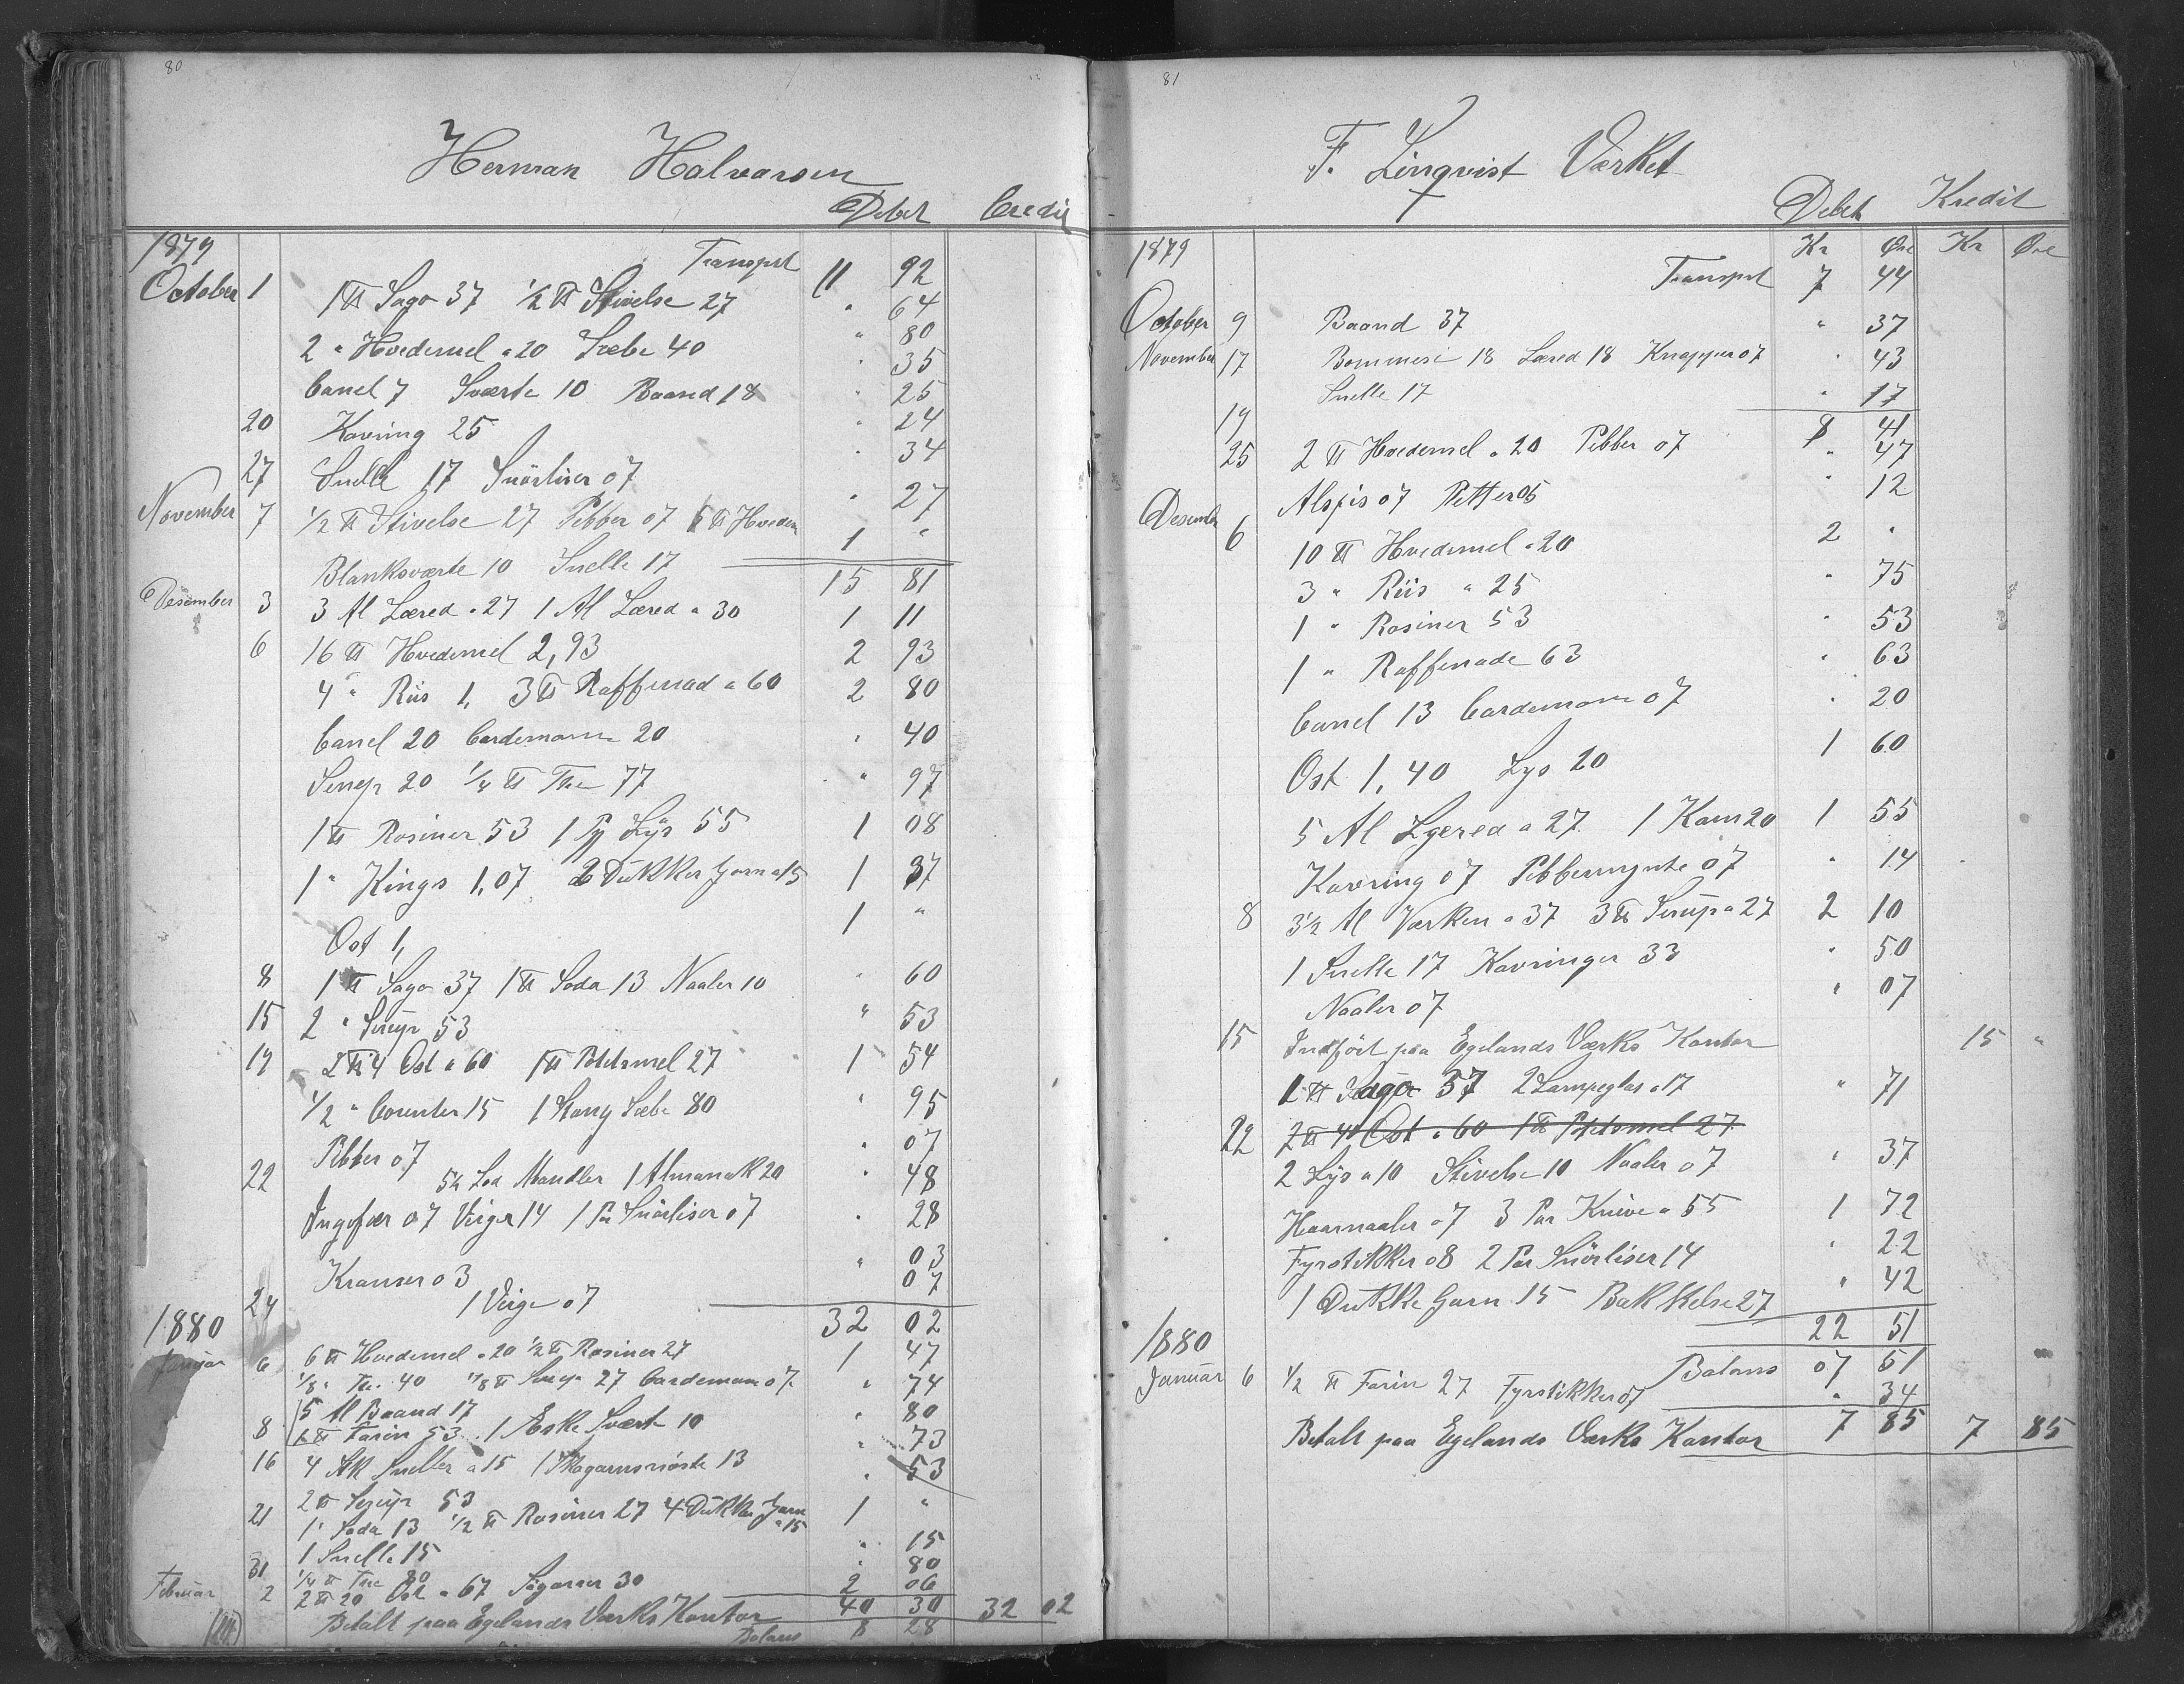 80
Herman Halvorsen
Debet Credit
1879
Transprt 11 92
October 1 1 ℔ Sago 37 1/2 ℔ Stivelse 27 " 64
2 " Hvedemel a 20 Sæbe 40 " 80
Canel 7 Sværte 10 Baand 18 " 35
20 Kavring 25 " 25
27 Snelle 17 Snörliser 07 " 24
November 7 1/2 ℔ Stivelse 27 Pebber 07 ℔ Hvedem " 34
Blanksværte 10 Snelle 17 " 27
1 "
15 81
Desember 3 3 Al Læred a 27 1 Al Læred a 30 1 11
6 16 ℔ Hvedemel 2,93 2 93
4 " Riis 1, 3 ℔ Raffinad a 60 2 80
Canel 20 Cardemomme 20 " 40
Senep 20 1/4 ℔ The 77 " 97
1 ℔ Rosiner 53 1 Pp Lÿs 55 1 08
1 " Kings 1,07 2 Dukker Garn a 15 1 37
Ost 1, 1 "
8 1 ℔ Sago 37 1 ℔ Soda 13 Naaler 10 " 60
15 2 " Serup 53 " 53
19 2 ℔ 4 Ost a 60 1 ℔ Potetsmel 27 1 54
1/2 " Corenter 15 1 Stang Sæbe 80 " 95
Pebber 07 " 07
22 5 1/2 Lod Mandler 1 Almanak 20 " 48
Ingefær 07 Viger 14 1 Par Snörliser 07 " 28
Kranser 03 " 03
24 1 Vige 07 07
32 02
1880
Januar 6 6 ℔ Hvedemel a 20 1/2 ℔ Rosiner 27 1 47
1/8 " The 40 7/8 ℔ Serup 27 Cardemome 07 " 74
5 Al Baand 17 " 80
8 1 ℔ Farin 53 1 Eske Sværte 10 " 73
16 4 Stk Sneller a 15 1 Skogarnsnöste 13 " 53
2 ℔ Serup 53
21 1 " Soda 13 1/2 ℔ Rosiner 27 4 Dukker Garn a 15 1 "
1 Snelle 15 " 15
31 1/4 ℔ The 80 " 80
Februar 2 2 ℔ 20 Ost a 67 Sigarrer 30 2 06
Betalt paa Egelands Værks Kontor 40 30 32 02
Balans 8 28
81
F. Linqvist Værket
Debet Kredit
1879 Kr Øre Kr Øre
Transprt 7 44
October 9 Baand 37 " 37
November 17 Bommesi 18 Læred 18 Knapper 07 " 43
19 Snelle 17 " 17
8 41
25 2 ℔ Hvedemel a 20 Pebber 07 " 47
Alspis 07 Petter 05 " 12
Desember 6 10 ℔ Hvedemel a 20 2 "
3 " Riis a 25 " 75
1 " Rosiner 53 " 53
1 " Raffenade 63 " 63
Canel 13 Cardemome 07 " 20
Ost 1,40 Lys 20 1 60
5 Al Lærred a 27 1 Kam 20 1 55
Kavring 07 Pebbermynte 07 " 14
8 3 1/2 Al Værken a 37 3 ℔ Serup a 27 2 10
1 Snelle 17 Kavringer 33 " 50
Naaler 07 " 07
15 Indfört paa Egelands Værks Kontor 15 "
1 ℔ Sago 37 2 Lampeglas a 17 " 71
22 2 ℔ 4 Ost a 60 1 ℔ Potetsmel 27
2 Lÿs a 10 Stivelse 10 Naaler 07 " 37
Haarnaaler 07 3 Par Knive a 55 1 72
Fyrstikker 08 2 Par Snörliser 14 " 22
1 Dukke Garn 15 Bakkelse 27 " 42
22 51
1880
Balans 07 51
Januar 6 1/2 ℔ Farin 27 Fyrstikker 07 " 34
Betalt paa Egelands Værks Kontor 7 85 7 85